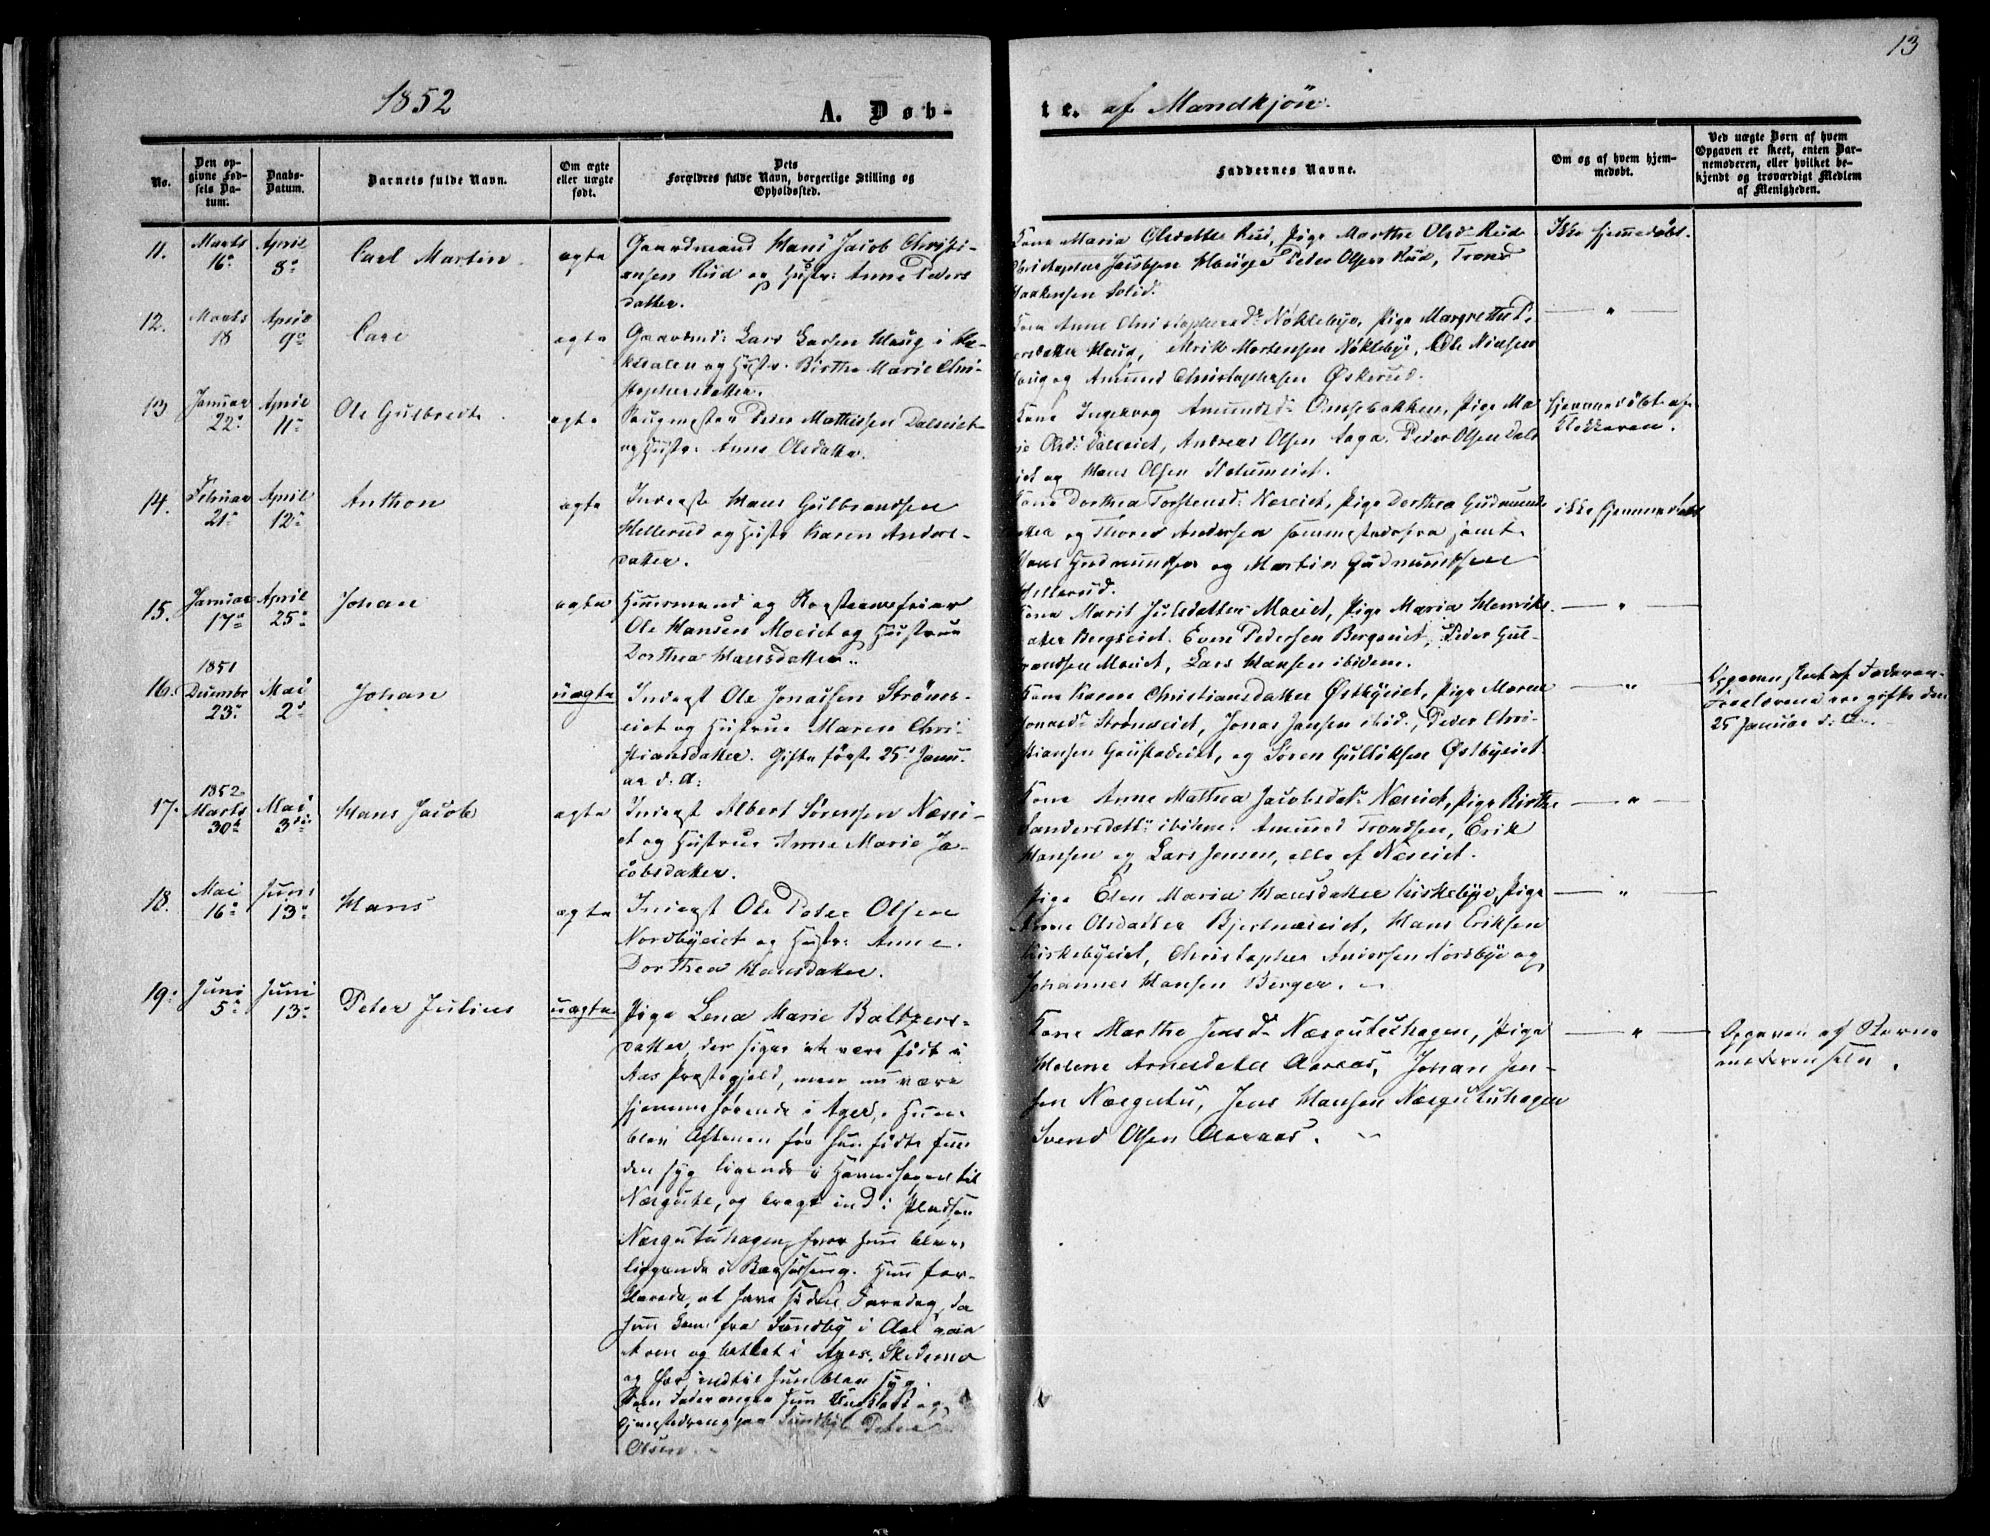 13
1852
A. Døb-
te. af Mandkjön.
No.
Den op-
givne Fød-
sels Da-
tum.
Daabs-
Datum.
Barnets fulde Navn.
Om ægte
eller uægte
født.
Dets
Forældres fulde Navn, borgerlige Stilling og
Opholdssted.
Faddernes Navne.
Om og af hvem hjem-
medøbt.
Ved uægte Børn af hvem
Opgaven er skeet, enten Bar-
nemoderen, eller hvilket be-
kjendt og troværdigt Medlem
af Menigheden.
11.
Marts
16de
April
8de
Carl Martin
ægte
Gaardmand Hans Jacob Christi-
ansen Rud og Hustr: Anne Peders
datter.
Kone Maria Olsdatter Rud, Pige Marthe Olsd. Rud
Christopher Jacobsen Hauger Peder Olsen Rud, Trond
Haakensen Solid.
Ikke hjemmedøbt.
12.
Marts
18
April
9de
Carl
ægte
Gaardmd: Lars Larsen Haug i
og Hustr. Birthe Marie Chri-
stophersdatter.
Kone Anne Christophersd: Nøklebye, Pige Margrethe P.
ersdatter Haug, Mortensen Nøklebye, Ole Nielsen
Haug og Amund Christophersen Øskerud.
— " —
13
Januar
22de
April
11te
Ole Gulbredt
ægte
Peder Mathisen Dalseiet
og Hustr: Anne Olsdatter.
Kone Ingeborg Amundsd: Pige Ma
rie Olsd: Dalseiet, Andreas Olsen Peder Olsen Dals
eiet og Hans Olsen
Hjemmedöbt af
Klokkeren.
14.
Februar
21de
April
12te
Anthon
ægte
Inderst Hans Gulbrandsen
Hellerud og Hustr Karen Anders-
datter.
Kone Dorthea Torstensd: Næseiet, Pige Dorthea Gudmunds
datter og Thored Andersen sammestedsfra samt
Hans Gudmundsen og Martin Gudmundsen
Hellerud.
ikke hjemmedøbt
15.
Januar
17de
April
25de
Johan
ægte
Huusmand og Skorsteensfeier
Ole Hansen Moeiet og Hustrue
Dorthea Hansdatter.
Kone Marit Julsdatter Moeiet, Pige Maria Henriks-
datter Bergseiet. Even Pedersen Bergseiet, Peder Gul-
brandsen Moeiet, Lars Hansen ibidem.
— " —
16.
1851
Decembr
23de
Mai
2de
Johan
uægte
Inderst Ole Jonassen Ströms-
eiet og Hustrue Maren Chri-
stiansdatter. Gifte først 25de Janu-
ar d. A:
Kone Karen Christiansdatter Østbyeiet, Pige Maren
Jonasd: Strömseiet, Jonas Jansen ibid., Peder Chri-
stiansen Gaustadeiet, og Søren Gulliksen Østbyeiet
"
Opgaven skeet af Faderen.
Forældrene ere gifte den
25 Januar d. A.
17.
1852
Marts
30te
Mai
3die
Hans Jacob
ægte
Inderst Albert Sörensen Næsei-
et og Hustrue Anne Marie Ja-
cobsdatter.
Kone Anne Mathea Jacobsdatr. Næseiet, Pige Birthe
Sandersdattr ibidem. Amund Trondsen, Erik
Hansen og Lars Jensen, alle af Næseiet.
— " —
18.
Mai
16de
Juni
13de
Hans
ægte
Inderst Ole Peter Olsen
Nordbyeiet og Hustr: Anne
Dorthea Hansdatter.
Pige Elen Maria Hansdatter Kirkebye, Pige
Anne Olsdatter Bjertnæseiet, Hans Eriksen
Kirkebyeiet, Christopher Andersen Nordbye og
Johannes Hansen Berger.
— " —
19.
Juni
5te
Juni
13de
Peter Julius
uægte
Pige Lena Marie Baltzers-
datter, der siges at være født i
Aas Præstegjeld, men nu være
hjemmehørende i Ager. Hun
blev Aftenen før hun fødte fun
den syg liggende i Havnehagen til
Næsgutu, og bragt ind i Pladsen
Næsgutuhagen, hvor hun blev
liggende i Barselseng. Hun for-
klarede, at have siden Faredag, da
hun kom fra Sundby i Aas
og bettlet i Ager, Skedsmo
og her indtil hun blev syg.
Som Fader angav hun
Tjenestedreng paa Sundbye Peter
Olsen.
Kone Marthe Jensd. Næsgutuhagen, Pige
Helene Arnesdatter Aaraas, Johan Jen-
sen Næsgutu, Jens Hansen Næsgutuhagen
Svend Olsen Aaraas.
— " —
Opgaven af Barne
moderen selv.